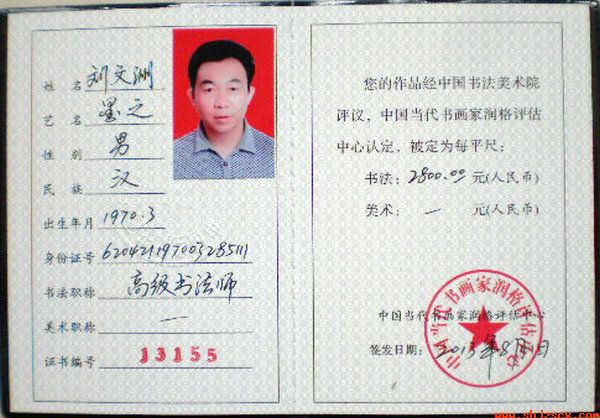 姓名 刘文洲
艺名 墨之
性别 男
民族 汉
出生年月 1970.3
身份证号 620421197003285111
书法职称 高级书法师
美术职称 一
证书编号 13155
您的作品经中国书法美术院
评议，中国当代书画家润格评估
中心认定，被定为每平尺：
书法：2800.00 元(人民币)
美术：一 元(人民币)
中国当代书画家润格评估中心
中国当代书画家润格评估中心
签发日期：2013年8月1日